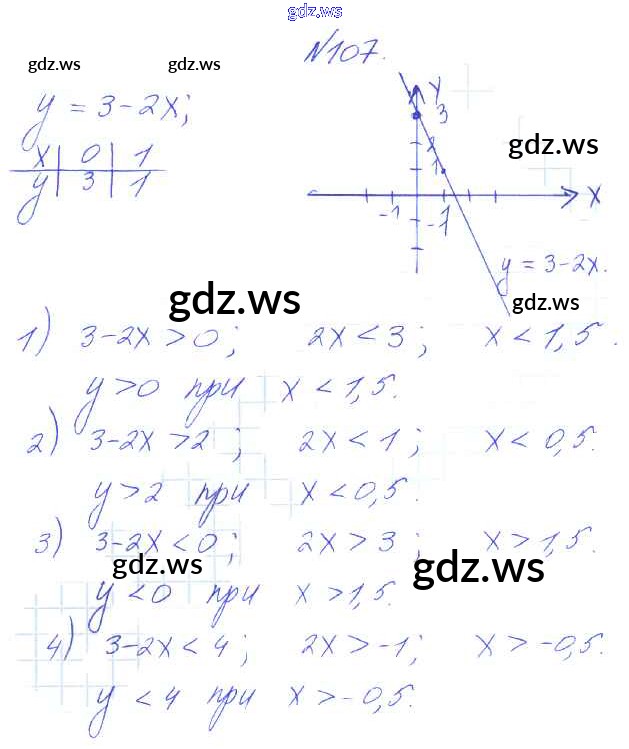 gdz.ws
N107.
gdz.ws gdz.ws
y = 3-2x;
x | 0 | 1
y | 3 | 1
y
3
2
1
gdz.ws
x
-1 -1
y = 3-2x.
gdz.ws
gdz.ws
1) 3-2x>0; 2x<3; x<1,5.
y>0 при x<1,5.
2) 3-2x>2; 2x<1; x<0,5.
y>2 при x<0,5.
3) 3-2x<0; 2x>3; x>1,5.
gdz.ws gdz.ws
y<0 при x>1,5.
4) 3-2x<4; 2x>-1; x>-0,5.
y<4 при x>-0,5.